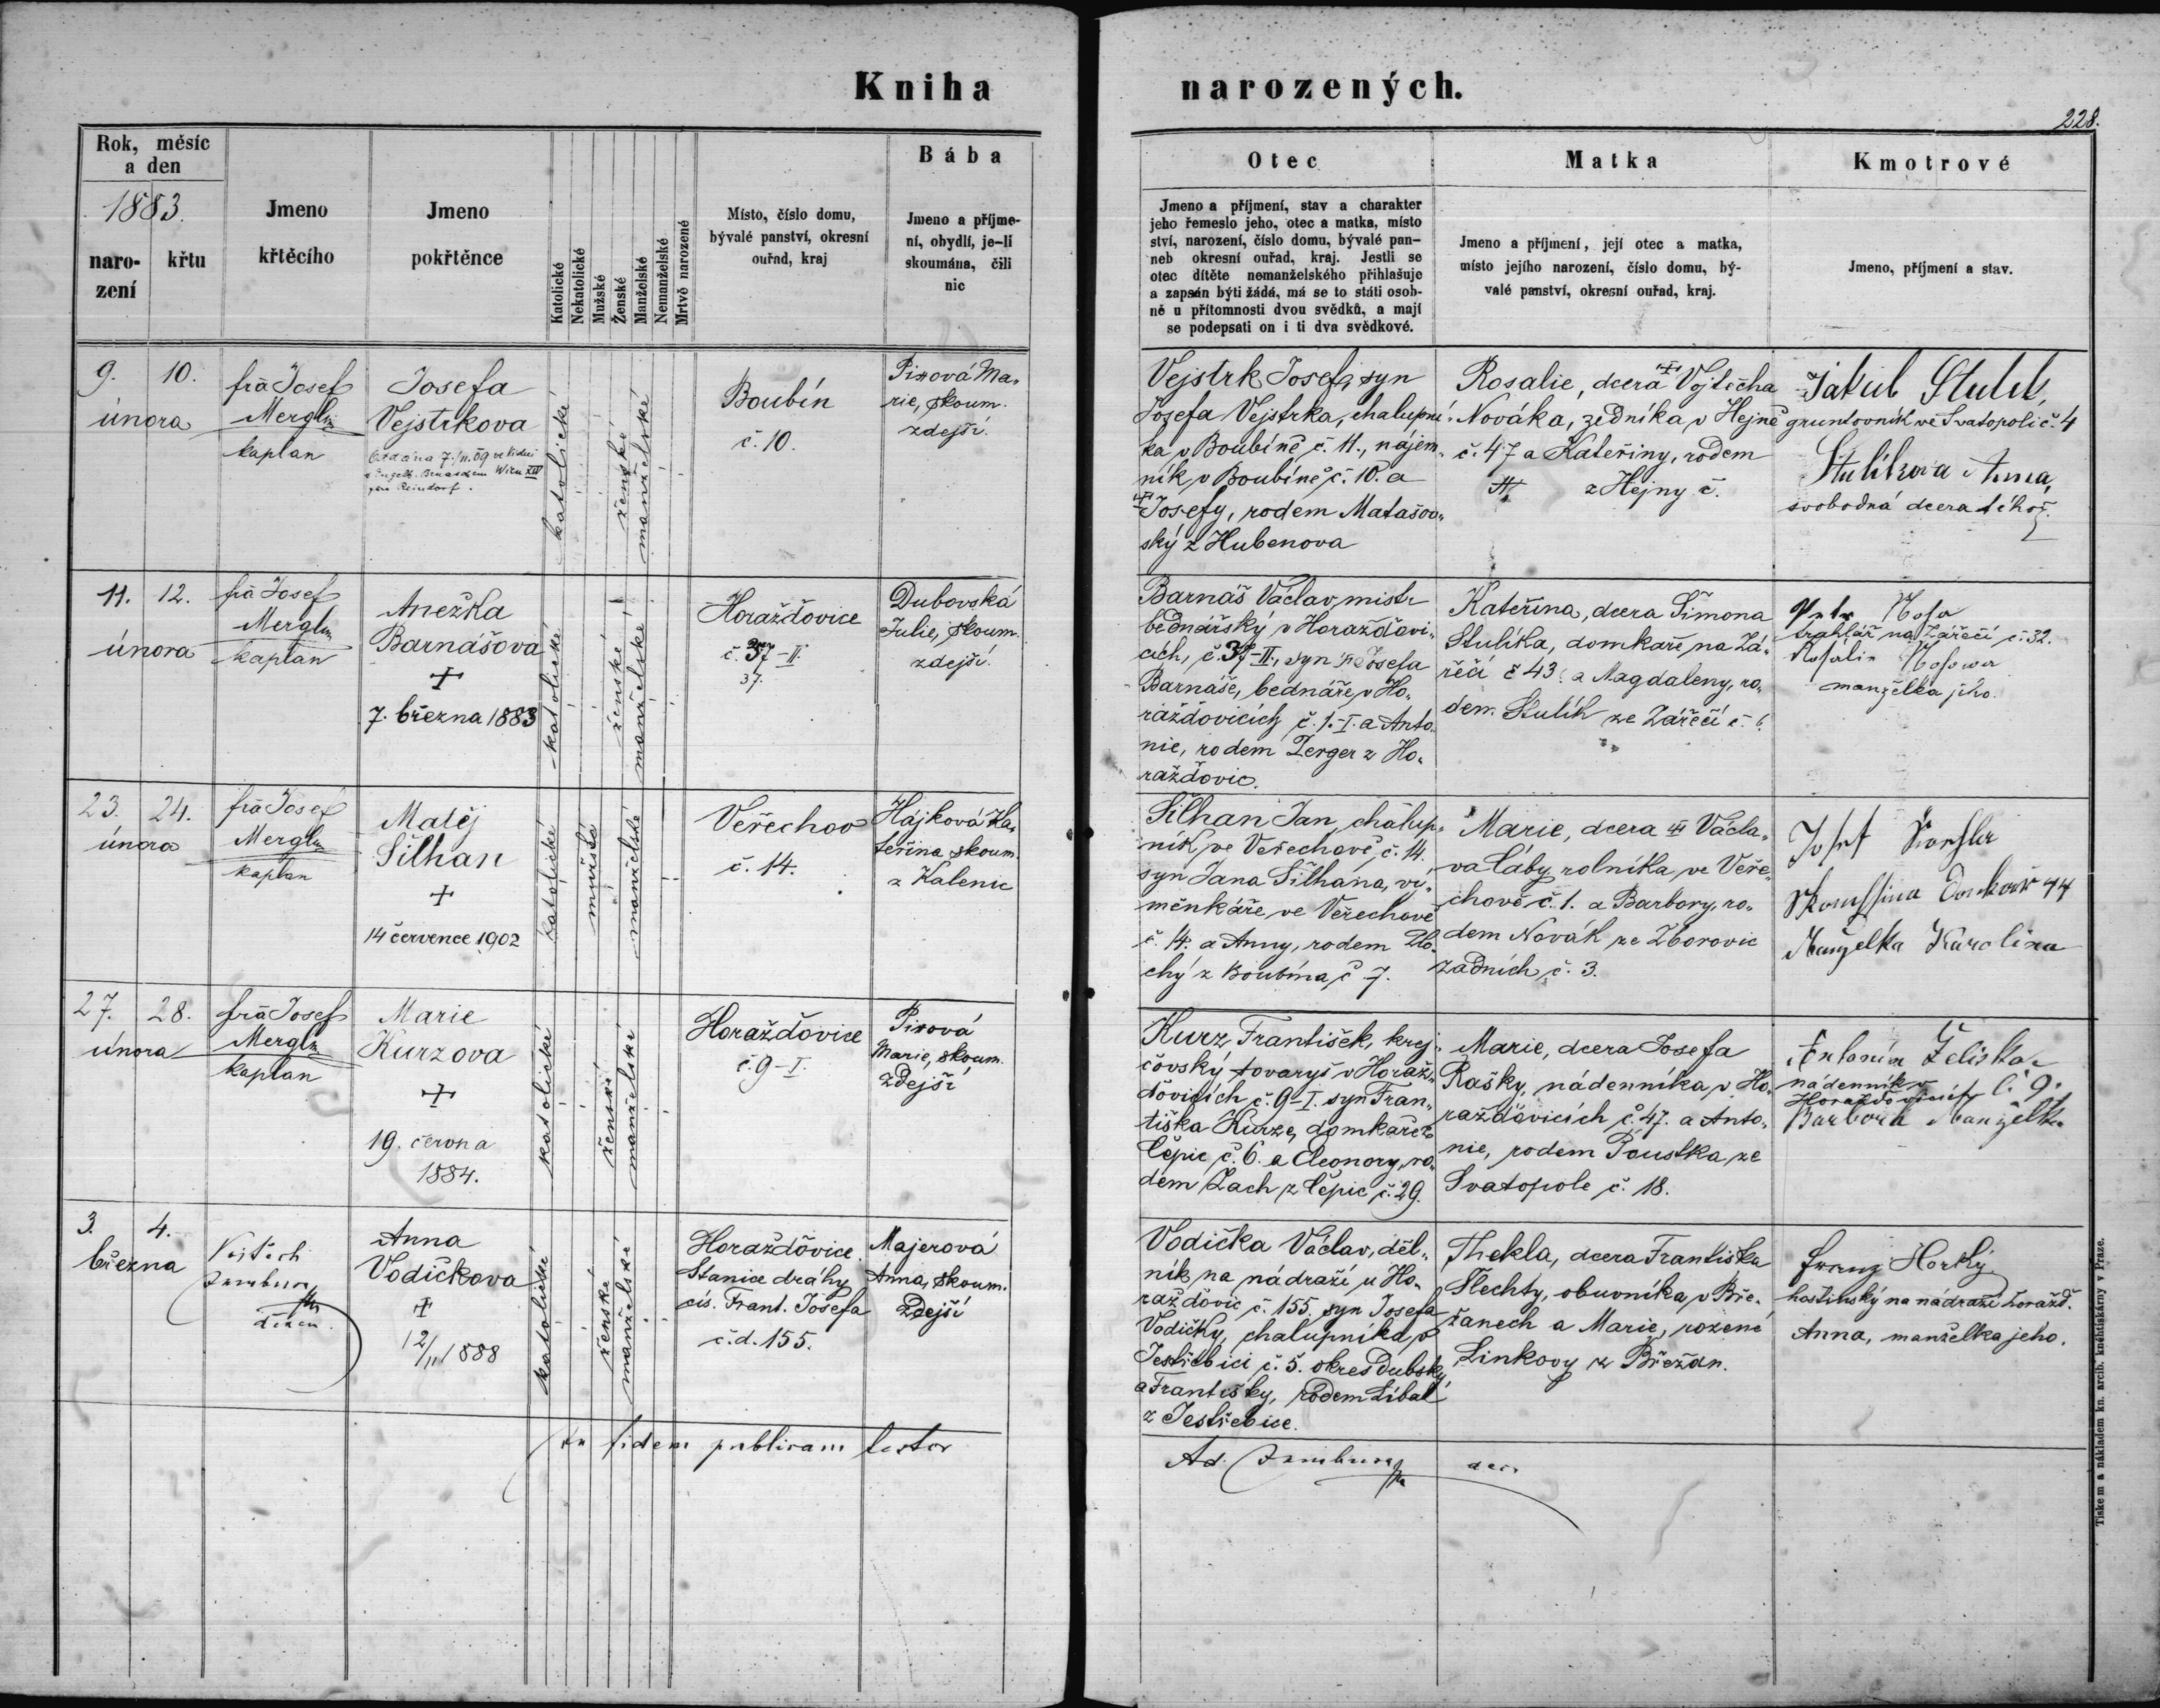 Kniha narozených.
228.
Rok, měsíc
a den
1883.
naro-
zení
křtu
Jmeno
křtěcího
Jmeno
pokřtěnce
Katolické
Nekatolické
Mužské
Ženské
Manželské
Nemanželské
Mrtvě narozené
Místo, číslo domu,
bývalé panství, okresní
ouřad, kraj
Bába
Jmeno a příjme-
ní, obydlí, je-li
skoumána, čili
nic
Otec
Jmeno a příjmení, stav a charakter
jeho řemeslo jeho, otec a matka, místo
ství, narození, číslo domu, bývalé pan-
neb okresní ouřad, kraj. Jestli se
otec dítěte nemanželského přihlašuje
a zapsán býti žádá, má se to státi osob-
ně u přítomnosti dvou svědků, a mají
se podepsati on i ti dva svědkové.
Matka
Jmeno a příjmení, její otec a matka,
místo jejího narození, číslo domu, bý-
valé panství, okresní ouřad, kraj.
Kmotrové
Jmeno, příjmení a stav.
9. 10.
února
frà Josef
Mergl
kaplan
Josefa
Vejstrkova
katolické
ženské
manželské
Boubín
č. 10.
Pixová Ma-
rie, skoum.
zdejší.
Vejstrk Josef, syn
Josefa Vejstrka, chalupní-
ka v Boubíně č. 11., nájem-
ník v Boubíně č. 10. a
Josefy, rodem Matašov-
ský z Hubenova
Rosalie, dcera Vojtěcha
Nováka, zedníka v Hejně
č. 47 a Kateřiny, rodem
z Hejny č.
Jakub Stulík,
gruntovník ve Svatopoli č. 4
Stulíkova Anna,
svobodná dcera téhož.
11. 12.
února
frà Josef
Mergl
kaplan
Anežka
Barnášova
+
7. března 1883
katolické
ženské
manželské
Horažďovice
č. 37-II.
37.
Dubovská
Julie, skoum.
zdejší.
Barnáš Václav, mistr
bednářský v Horažďovi-
cích, č. 37-II., syn Josefa
Barnáše, bednáře v Ho-
ražďovicích č. 1.-I. a Anto-
nie, rodem Zerger z Ho-
ražďovic.
Kateřina, dcera Šimona
Stulíka, domkaře na Zá-
řečí č 43. a Magdaleny, ro-
dem Stulík ze Zářečí č. 6.
na Zářečí č. 32.
manželka jeho.
23. 24.
února
frà Josef
Mergl
kaplan
Matěj
Šilhan
+
14 července 1902
katolické
mužské
manželské
Veřechov
č. 14.
Hájková Ka-
teřina skoum.
z Kalenic
Šilhan Jan, chalup-
ník ve Veřechově, č. 14.
syn Jana Šilhana, vý-
měnkáře ve Veřechově
č. 14. a Anny, rodem Plo-
chý z Boubína, č 7.
Marie, dcera Václa-
va Cáby rolníka, ve Veře-
chově č. 1. a Barbory, ro-
dem Novák ze Zborovic
zadních, č. 3.
Josef
44
Manželka Karolina
27. 28.
února
frà Josef
Mergl
kaplan
Marie
Kurzova
+
19. června
1884.
katolické
ženské
manželské
Horažďovice
č. 9-I.
Pixová
Marie, skoum.
zdejší
Kurz František, krej-
čovský tovaryš v Horaž-
ďovicích č. 9-I. syn Fran-
tiška Kurze, domkaře z
Čepic č. 6. a Eleonory, ro-
dem Zach z Čepic, č. 29.
Marie, dcera Josefa
Rašky, nádenníka v Ho-
ražďovicích č. 47. a Anto-
nie, rodem Poustka ze
Svatopole č. 18.
Antonín Želiska
nádenník v
Horažďovicích č. 9.
Barbora Manželka
3. 4.
března
Vojtěch
děkan
Anna
Vodičkova
+
12/11 1888
katolické
ženské
manželské
Horažďovice
Stanice dráhy
cís. Frant. Josefa
č.d. 155.
Majerová
Anna, skoum.
zdejší
Vodička Václav, děl-
ník na nádraží u Ho-
ražďovic č. 155. syn Josefa
Vodičky, chalupníka v
Jestřebici č. 5. okres Dubský,
a Františky, rodem Líbal
z Jestřebice.
Thekla, dcera Františka
Šlechty, obuvníka v Bře-
žanech a Marie, rozené
Linkovy z Břežan.
Franz Horký
hostinský na nádraží Horažď.
Anna, manželka jeho.
In fidem publicam testor
Ad.
Tiskem a nákladem kn. arcib. knehtiskárny v Praze.